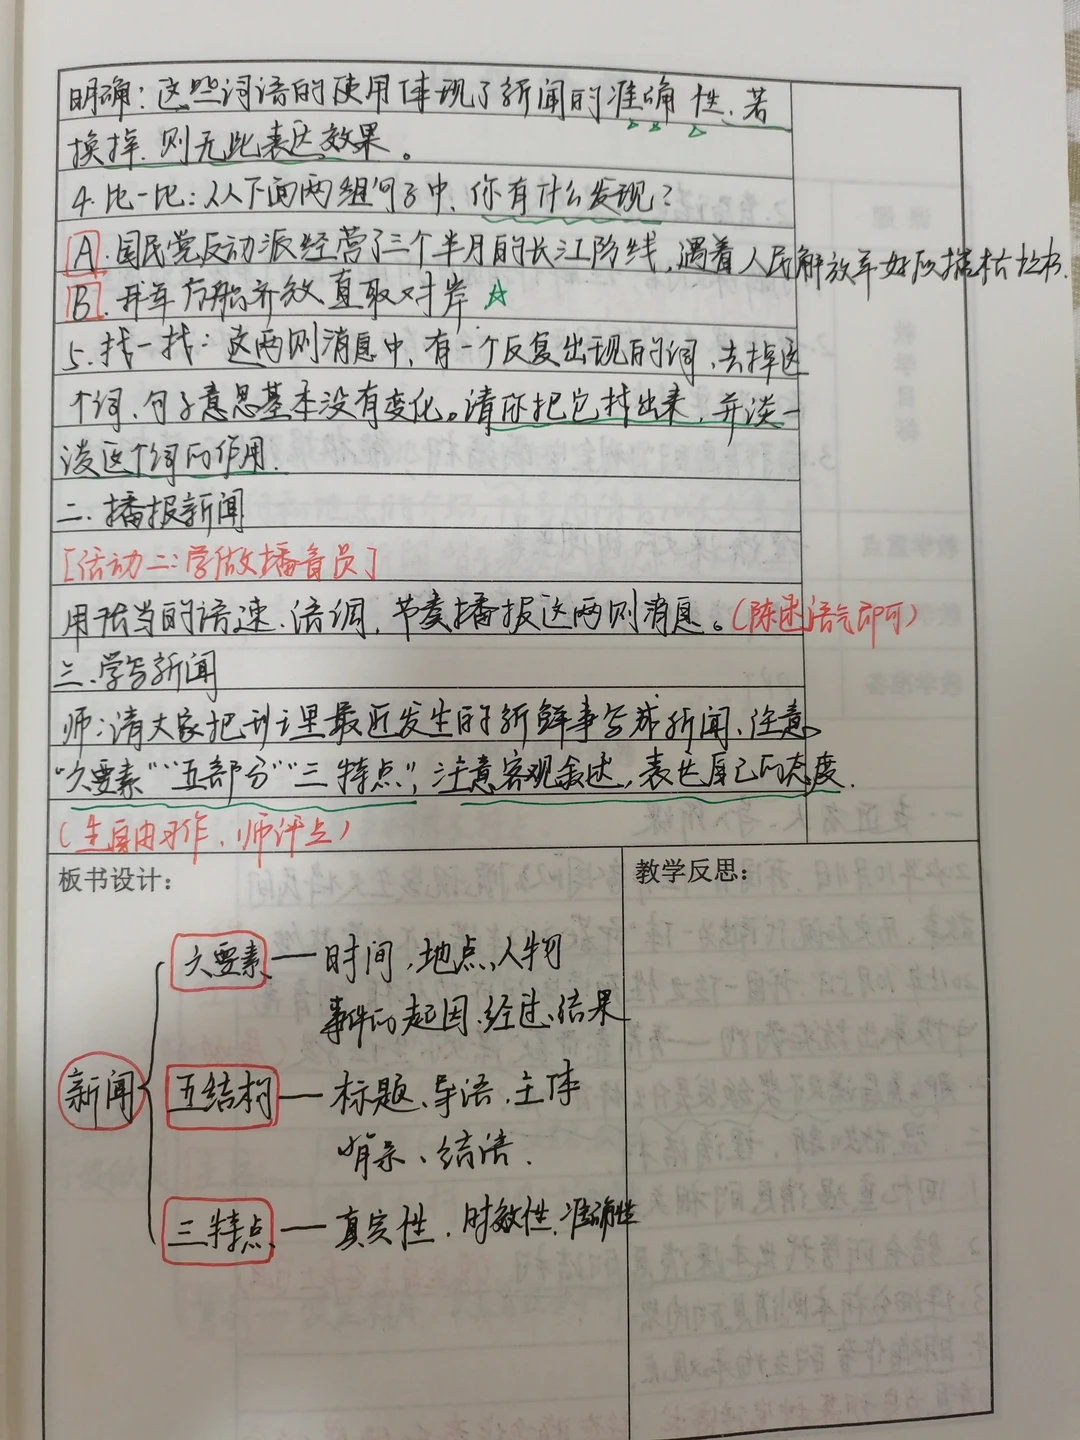 明确：这些词语的使用体现了新闻的准确性、若
换掉、则无此表达效果。
4.比一比：从下面两组句子中、你有什么发现？
A.国民党反动派经营了三个半月的长江防线，遇着人民解放军好似摧枯拉朽.
B.我军万船齐放、直取对岸
5.找一找：这两则消息中，有一个反复出现的词、去掉这
个词、句子意思基本没有变化。请你把它找出来，并谈一
谈这个词的作用.
二.播报新闻
[活动二：学做播音员]
用恰当的语速、语调，节奏播报这两则消息。(陈述语气即可)
三.学写新闻
师：请大家把我们这里最近发生的新鲜事写成新闻、注意
“六要素”“五部分”“三特点”，注意客观叙述，表达自己的态度.
(生自由习作，师评点)
板书设计：
教学反思：
六要素 — 时间、地点、人物
事件的起因、经过、结果
新闻
五结构 — 标题、导语、主体
背景、结语.
三特点 — 真实性、时效性、准确性